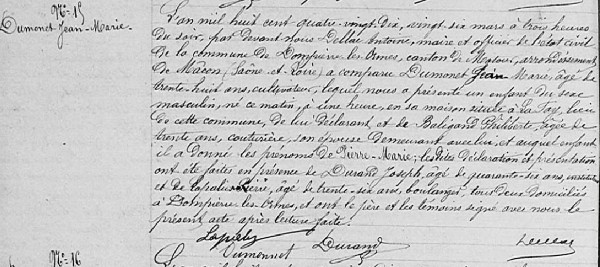 N° 15
Dumonet Jean-Marie.
L'an mil huit cent quatre-vingt-dix, vingt-six mars à trois heures
du soir, par devant nous Dellac Antoine, maire et officier de l'état civil
de la commune de Dompierre les Ormes, canton de Matour, arrondissement
de Mâcon (Saône et Loire) a comparu Dumonet Jean Marie, âgé de
trente-huit ans, cultivateur, lequel nous a présenté un enfant du sexe
masculin, né ce matin, à une heure, en sa maison située à La Fay, lieu
de cette commune, de lui déclarant, et de Baligand Philiberte, âgée de
trente ans, couturière, son épouse demeurant avec lui, et auquel enfant
il a donné les prénoms de Pierre-Marie; lesdites déclaration et présentation
ont été faites en présence de Durand Joseph, âgé de quarante-six ans,
et de Lapalus Pierre, âgé de trente-six ans, boulanger, tous deux domiciliés
à Dompierre les Ormes, et ont le père et les témoins signé avec nous le
présent acte après lecture faite.
Dumonnet Durand
N° 16